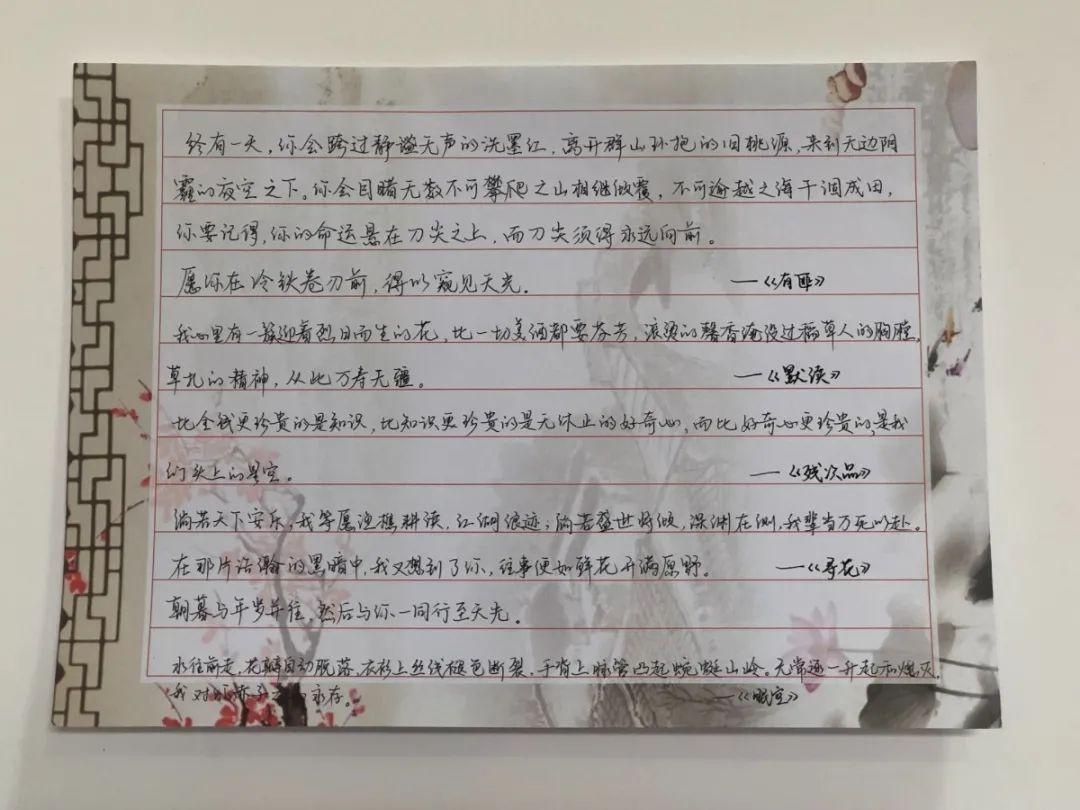 终有一天,你会跨过静谧无声的洗墨江,离开群山环抱的旧桃源,来到无边阴
霾的夜空之下。你会目睹无数不可攀爬之山相继倾覆,不可逾越之海干涸成田,
你要记得,你的命运悬在刀尖之上,而刀尖须得永远向前。
愿你在冷铁卷刃前,得以窥见天光。 ——《有匪》
我心里有一簇迎着烈日而生的花,比一切美酒都要芬芳,滚烫的馨香淹没过稻草人的胸膛,
草扎的精神,从此万寿无疆。 ——《默读》
比金钱更珍贵的是知识,比知识更珍贵的是无休止的好奇心,而比好奇心更珍贵的,是我
们头上的星空。 ——《残次品》
倘若天下安乐,我等愿渔樵耕读,江湖浪迹;倘若盛世将倾,深渊在侧,我辈当万死以赴。
在那片浩瀚的黑暗中,我又想到了你,往事便如鲜花开满原野。 ——《寻花》
朝暮与年岁并往,然后与你一同行至天光。
水往前走,花瓣自动脱落,衣衫上丝线褪色断裂,手背上脉管凸起蜿蜒山岭。无常逐一升起和熄灭,
我对 永存。 ——《眠空》